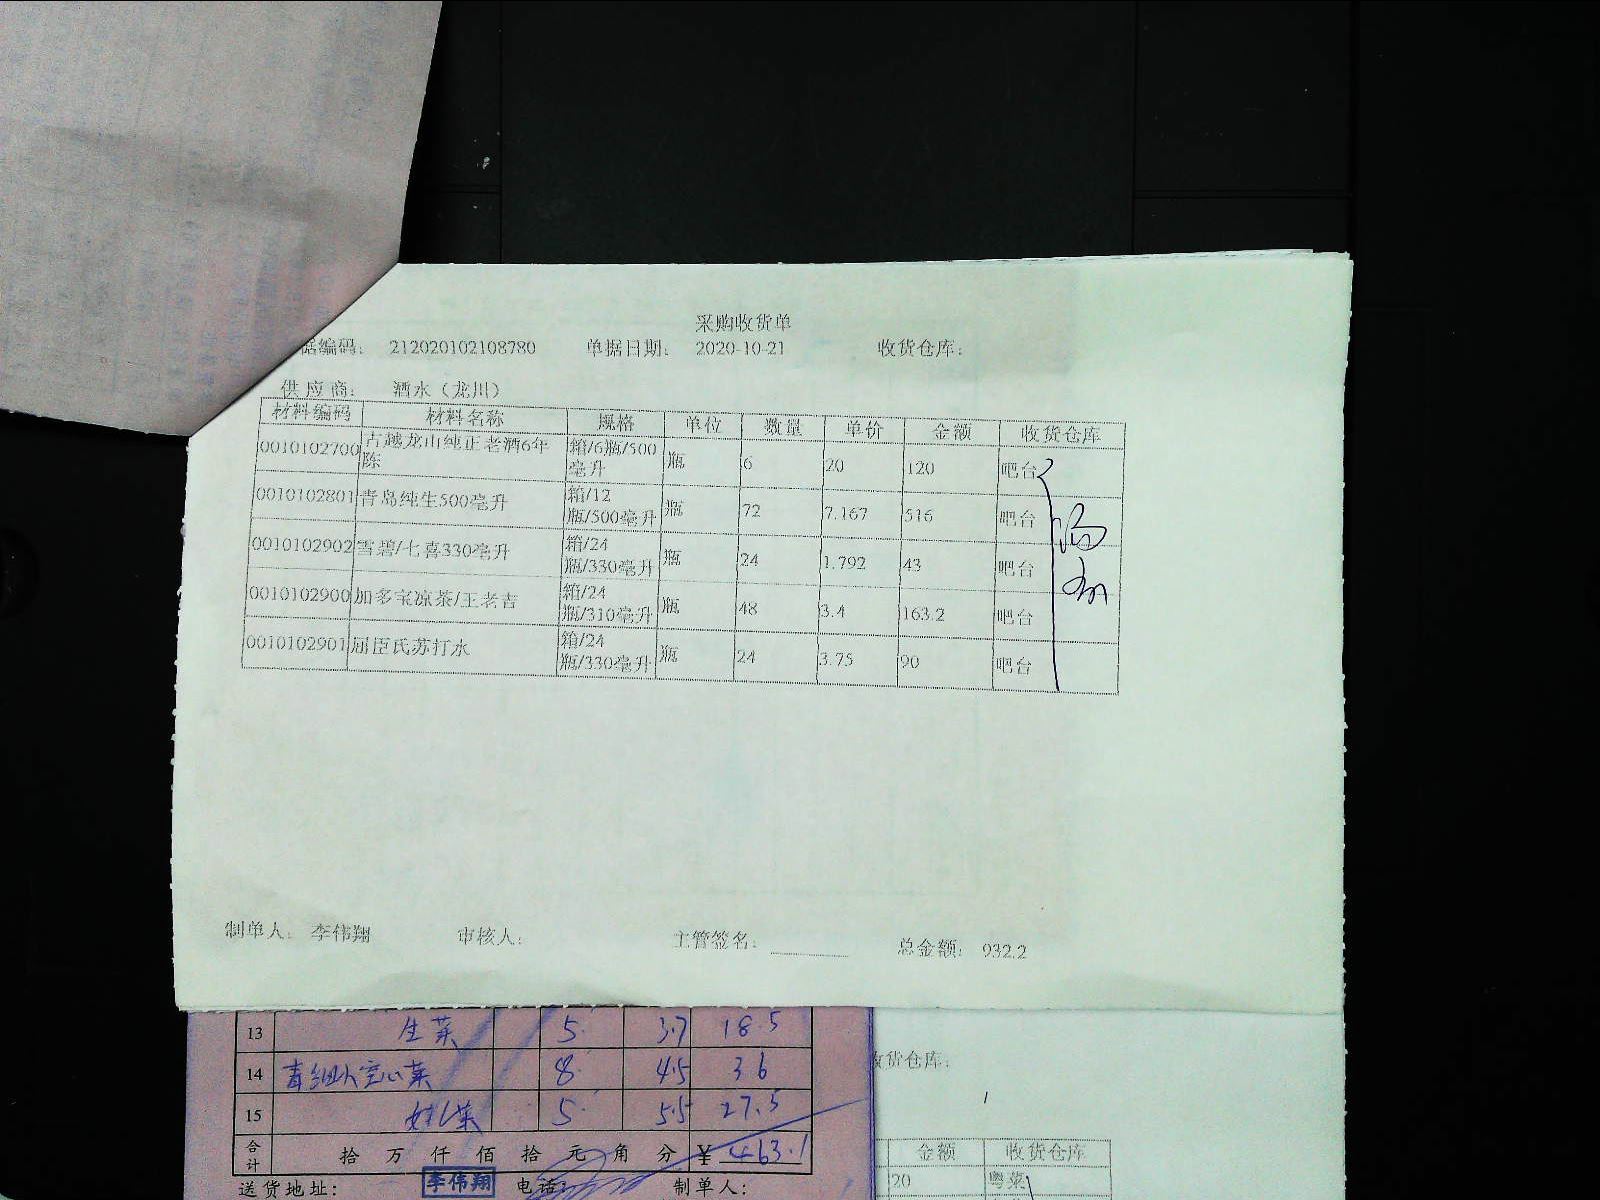 采购收货单
据编码： 212020102108780 单据日期： 2020-10-21 收货仓库：
供应商： 酒水（龙川）
材料编码 材料名称 规格 单位 数量 单价 金额 收货仓库
0010102700 古越龙山纯正老酒6年陈 箱/6瓶/500毫升 瓶 6 20 120 吧台
0010102801 青岛纯生500毫升 箱/12瓶/500毫升 瓶 72 7.167 516 吧台
0010102902 雪碧/七喜330毫升 箱/24瓶/330毫升 瓶 24 1.792 43 吧台
0010102900 加多宝凉茶/王老吉 箱/24瓶/310毫升 瓶 48 3.4 163.2 吧台
0010102901 屈臣氏苏打水 箱/24瓶/330毫升 瓶 24 3.75 90 吧台
制单人： 李伟翔 审核人： 主管签名： 总金额： 932.2
13 生菜 5 3.7 18.5
14 空心菜 8 4.5 36
15 5 5.5 27.5
合计 拾 万 仟 佰 拾 元 角 分 ￥ 463.1
送货地址： 李伟翔 电话： 制单人：
收货仓库：
金额 收货仓库
20 粤菜